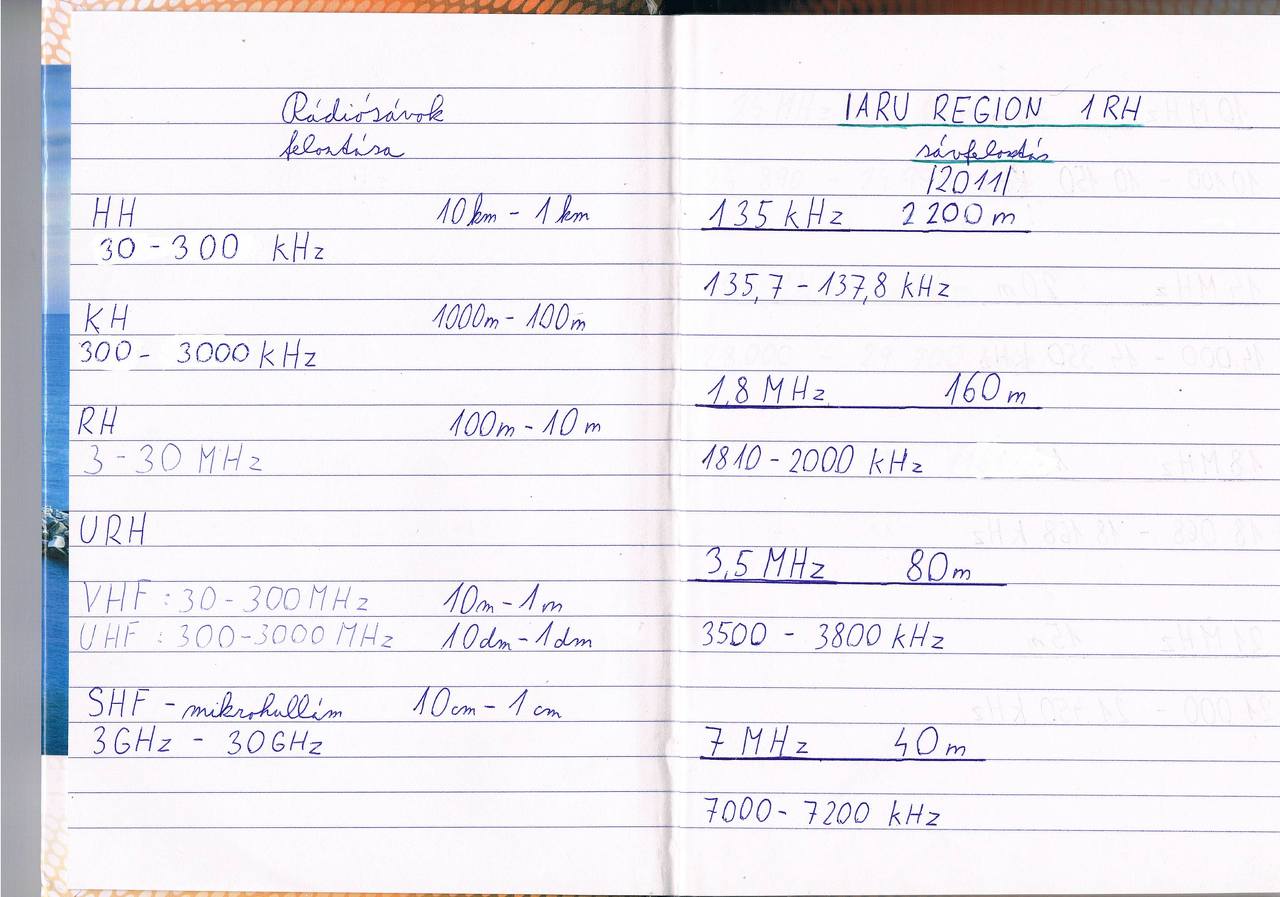 Rádiósávok
felosztása
HH 10km - 1km
30 - 300 kHz
KH 1000m - 100m
300 - 3000 kHz
RH 100m - 10m
3 - 30 MHz
URH
VHF : 30 - 300 MHz 10m - 1m
UHF : 300 - 3000 MHz 10dm - 1dm
SHF - mikrohullám 10cm - 1cm
3GHz - 30GHz
IARU REGION 1 RH
sávfelosztás
/2011/
135 kHz 2200m
135,7 - 137,8 kHz
1,8 MHz 160m
1810 - 2000 kHz
3,5 MHz 80m
3500 - 3800 kHz
7 MHz 40m
7000 - 7200 kHz